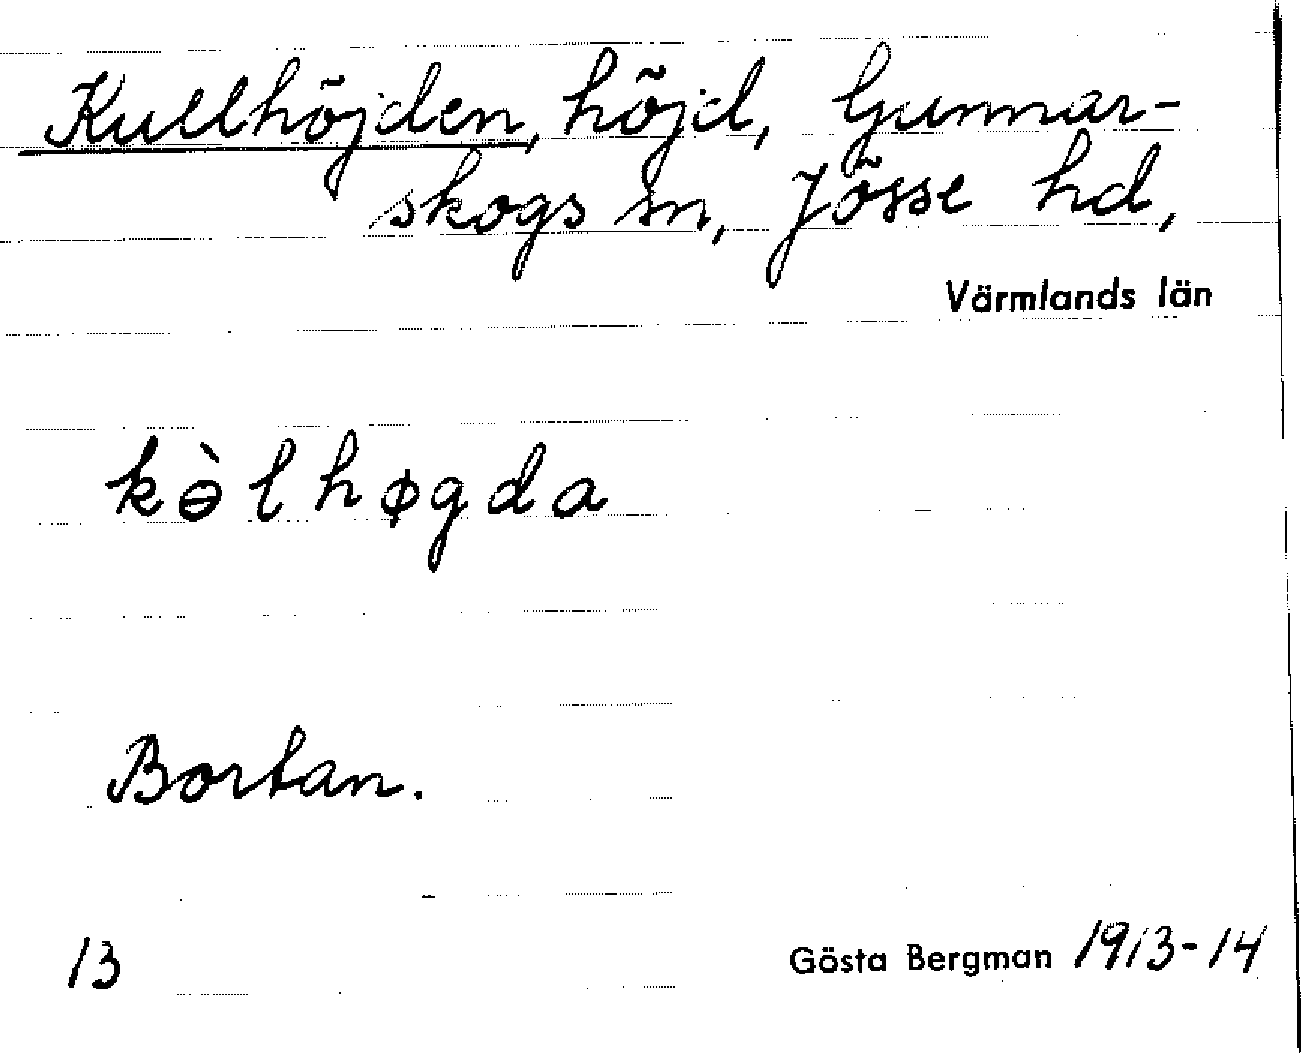 Kullhöjden, höjd, Gunnar-
skogs sn, Jösse hd,
Värmlands län
kɵ̀lhøgda
Bortan.
13
Gösta Bergman 1913-14